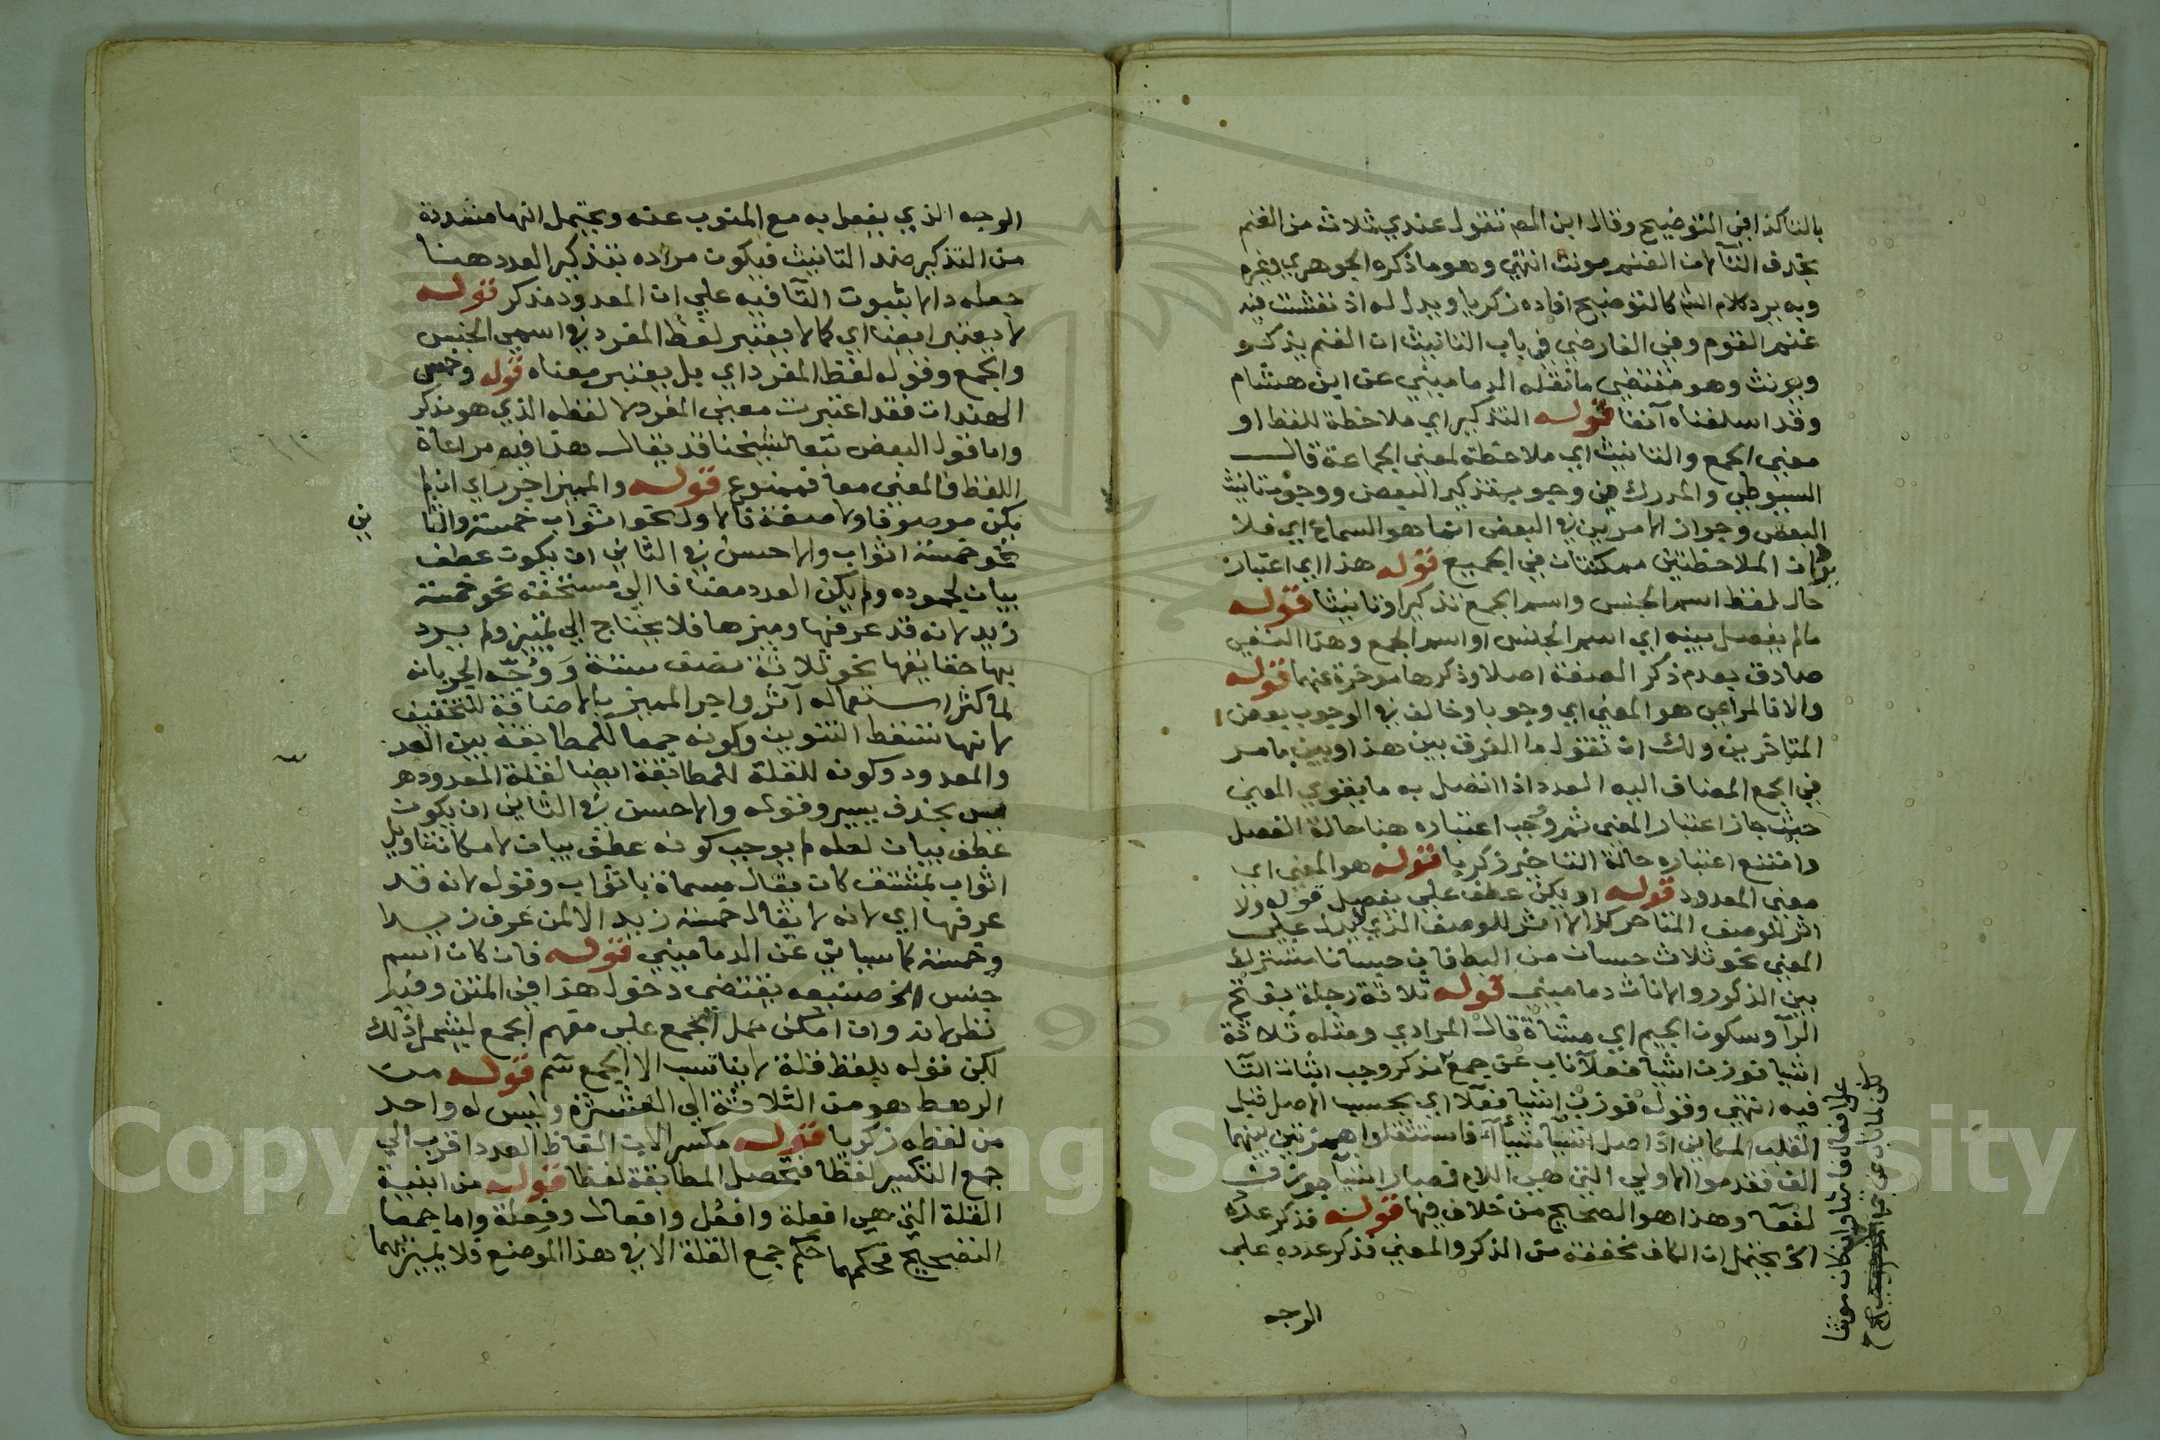 بالتا كذا في التوضيح وقال ابن المص تقول عندي ثلاث من الغنم
بحذف التآ لان الغنم مونث انتهي وهو ما ذكره الجوهري وغيره
وبه يرد كلام الش كالتوضيح افاده زكريا ويدل له اذ نفشت فيه
غنم القوم وفي الفارضي في باب التانيث ان الغنم يذكر
ويونث وهو مقتضي ما نقله الدماميني عن ابن هشام
وقد اسلفناه آنفا قوله التذكير اي ملاحظة للفظ او
معني الجمع والتانيث اي ملاحظة لمعني الجماعة قال
السيوطي والمدرك في وجوب تذكير البعض ووجوب تانيث
البعض وجواز الامرين في البعض انما هو السماع اي فلا
يرد ان الملاحظتين ممكنتان في الجميع قوله هذا اي اعتبار
حال لفظ اسم الجنس واسم الجمع تذكيرا وتانيثا قوله
مالم يفصل بينه اي اسم الجنس او اسم الجمع وهذا النفي
صادق بعدم ذكر الصفة اصلا وذكرها موخرة عنهما قوله
والا فالمراعي هو المعني اي وجوبا وخالف في الوجوب بعض
المتاخرين ولك ان تقول ما الفرق بين هذا وبين ما مر
في الجمع المضاف اليه العدد اذا اتصل به ما يقوي المعني
حيث جاز اعتبار المعني ثم وجب اعتباره هنا حالة الفصل
وامتنع اعتباره حالة التاخير زكريا قوله هو المعني اي
معني المعدود قوله او يكن عطف علي يفصل قوله ولا
اثر للوصف المتاخر كذا لا اثر للوصف الذي لا يدل علي
المعني نحو ثلاث حسان من البط فان حسانا مشترك
بين الذكور والاناث دماميني قوله ثلاثة رجلة بفتح
الرآ وسكون الجيم اي مشاة قال المرادي ومثله ثلاثة
اشيا فوزن اشيا فعلآ ناب عن جمع مذكر وجب اثبات التا
فيه انتهي وقوله فوزن اشيا فعلآ اي بحسب الاصل قبل
القلب المكاني اذ اصل اشيا شيأآ فاستثقلوا همزتين بينهما
الف فقدموا الاولي التي هي اللام فصار اشيآ بوزن
لفعآ وهذا هو الصحيح من خلاف فيها قوله فذكر عدده
الخ يحتمل ان الكاف مخففة من الذكر والمعني فذكر عدده علي
الوجه
الوجه الذي يفعل به مع المنوب عنه ويحتمل انها مشددة
من التذكير ضد التانيث فيكون مراده بتذكير العدد هنا
جعله دالا بثبوت التآ فيه علي ان المعدود مذكر قوله
لا يعتبر ايضا اي كما لا يعتبر لفظ المفرد في اسمي الجنس
والجمع وقوله لفظ المفرد اي بل يعتبر معناه قوله وخمس
الهندات فقد اعتبرت معني المفرد لا لفظه الذي هو مذكر
واما قول البعض تبعا لشيخنا قد يقال هذا فيه مراعاة
اللفظ والمعني معا فممنوع قوله والمميز اجرر اي ان لم
يكن موصوفا ولا صفة فالاول نحو اثواب خمسة والثا
ني
نحو خمسة اثواب والاحسن في الثاني ان يكون عطف
بيان لجموده ولم يكن العدد مضافا الي مستحقه نحو خمسة
زيد لانه قد عرفها وميزها فلا يحتاج الي تمييز ولم يرد
بها حقايقها نحو ثلاثة نصف ستة ووجه الجر بانه
لما كثر استعماله آثروا جر المميز بالاضافة للتخفيف
لانها تسقط التنوين وكونه جمعا للمطابقة بين العدد
والمعدود وكونه للقلة للمطابقة ايضا لقلة المعدود
بحذف يسير وقوله والاحسن في الثاني ان يكون
عطف بيان لعله لم يوجب كونه عطف بيان لامكان تاويل
اثواب بمشتق كان يقال مسماة باثواب وقوله لانه قد
عرفها اي لانه لا يقال خمسة زيد الا لمن عرف زيدا
وخمسة كما سياتي عن الدماميني قوله فان كان اسم
جنس الخ صنيعه يقتضي دخول هذا في المتن وفيه
نظر لانه وان امكن حمل الجمع علي مفهم الجمع ليشمل ذلك
لكن قوله بلفظ قلة لا يناسب الا الجمع سم قوله من
الرهط هو من الثلاثة الي العشرة وليس له واحد
من لفظه زكريا قوله مكسرا لان الفاظ العدد اقرب الي
جمع التكسير لفظا فتحصل المطابقة لفظا قوله من ابنية
القلة التي هي افعلة وافعل وافعال وفعلة واما جمعا
التصحيح فحكمهما حكم جمع القلة الا في هذا الموضع فلا يميز بهما